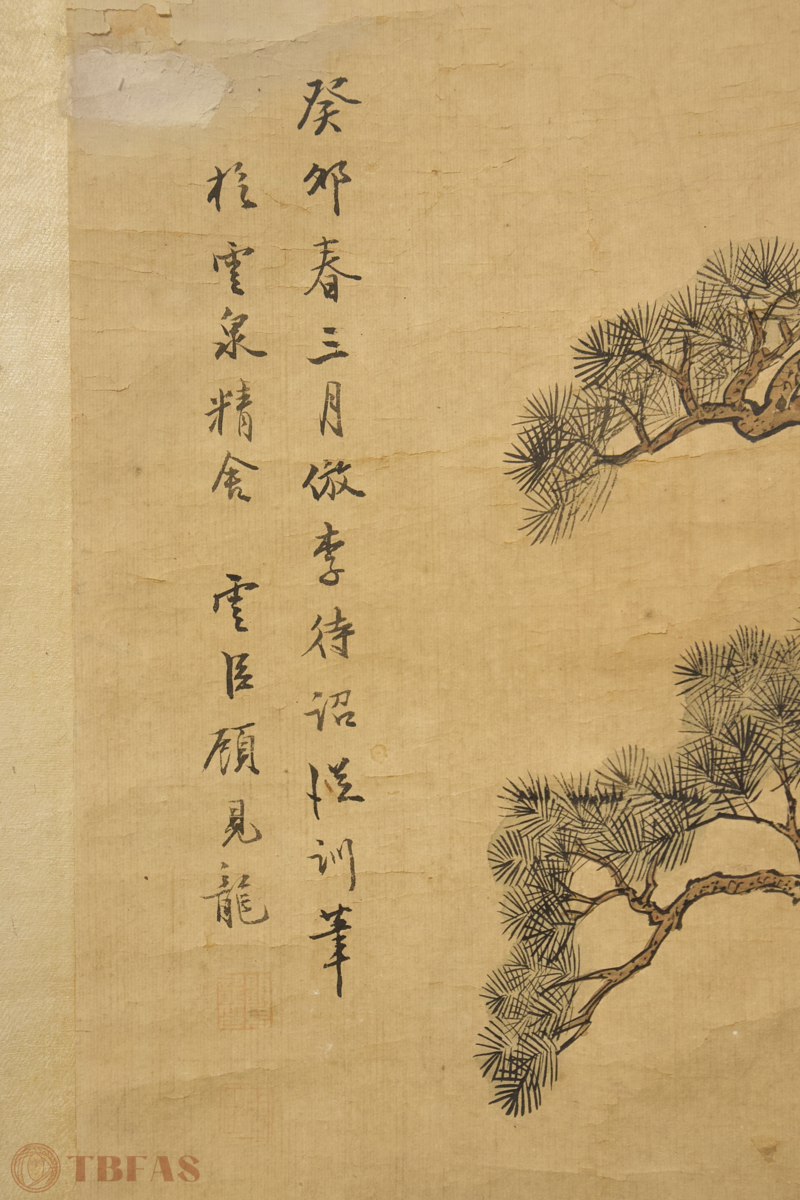 癸卯春三月倣李待詔從訓筆
於雲泉精舍 雲臣顧見龍
TBFAS